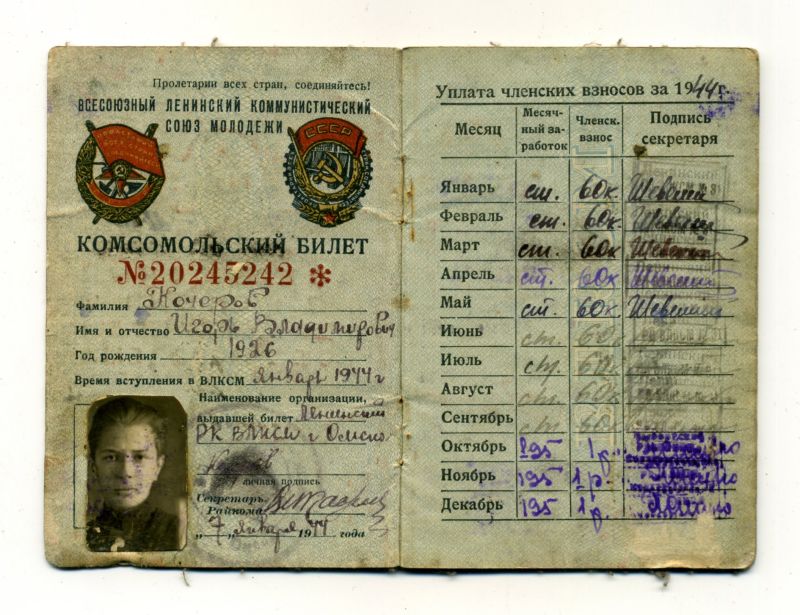 Пролетарии всех стран, соединяйтесь!
ВСЕСОЮЗНЫЙ ЛЕНИНСКИЙ КОММУНИСТИЧЕСКИЙ
СОЮЗ МОЛОДЕЖИ
СССР
КОМСОМОЛЬСКИЙ БИЛЕТ
№20245242 *
Фамилия Кочеров
Имя и отчество Игорь Владимирович
Год рождения 1926
Время вступления в ВЛКСМ январь 1944 г
Наименование организации,
выдавшей билет Ленинский
РК ВЛКСМ г Омска
личная подпись
Секретарь
Райкома
„7" января 1944 года
Уплата членских взносов за 1944 г.
Месяц Месячный заработок Членск. взнос Подпись секретаря
Январь ст. 60к.
Февраль ст. 60к.
Март ст. 60к
Апрель ст. 60к
Май ст. 60к.
Июнь ст. 60
Июль ст. 60к
Август ст. 60к
Сентябрь ст. 60
Октябрь 895 1р.
Ноябрь 195 1р.
Декабрь 195 1р.